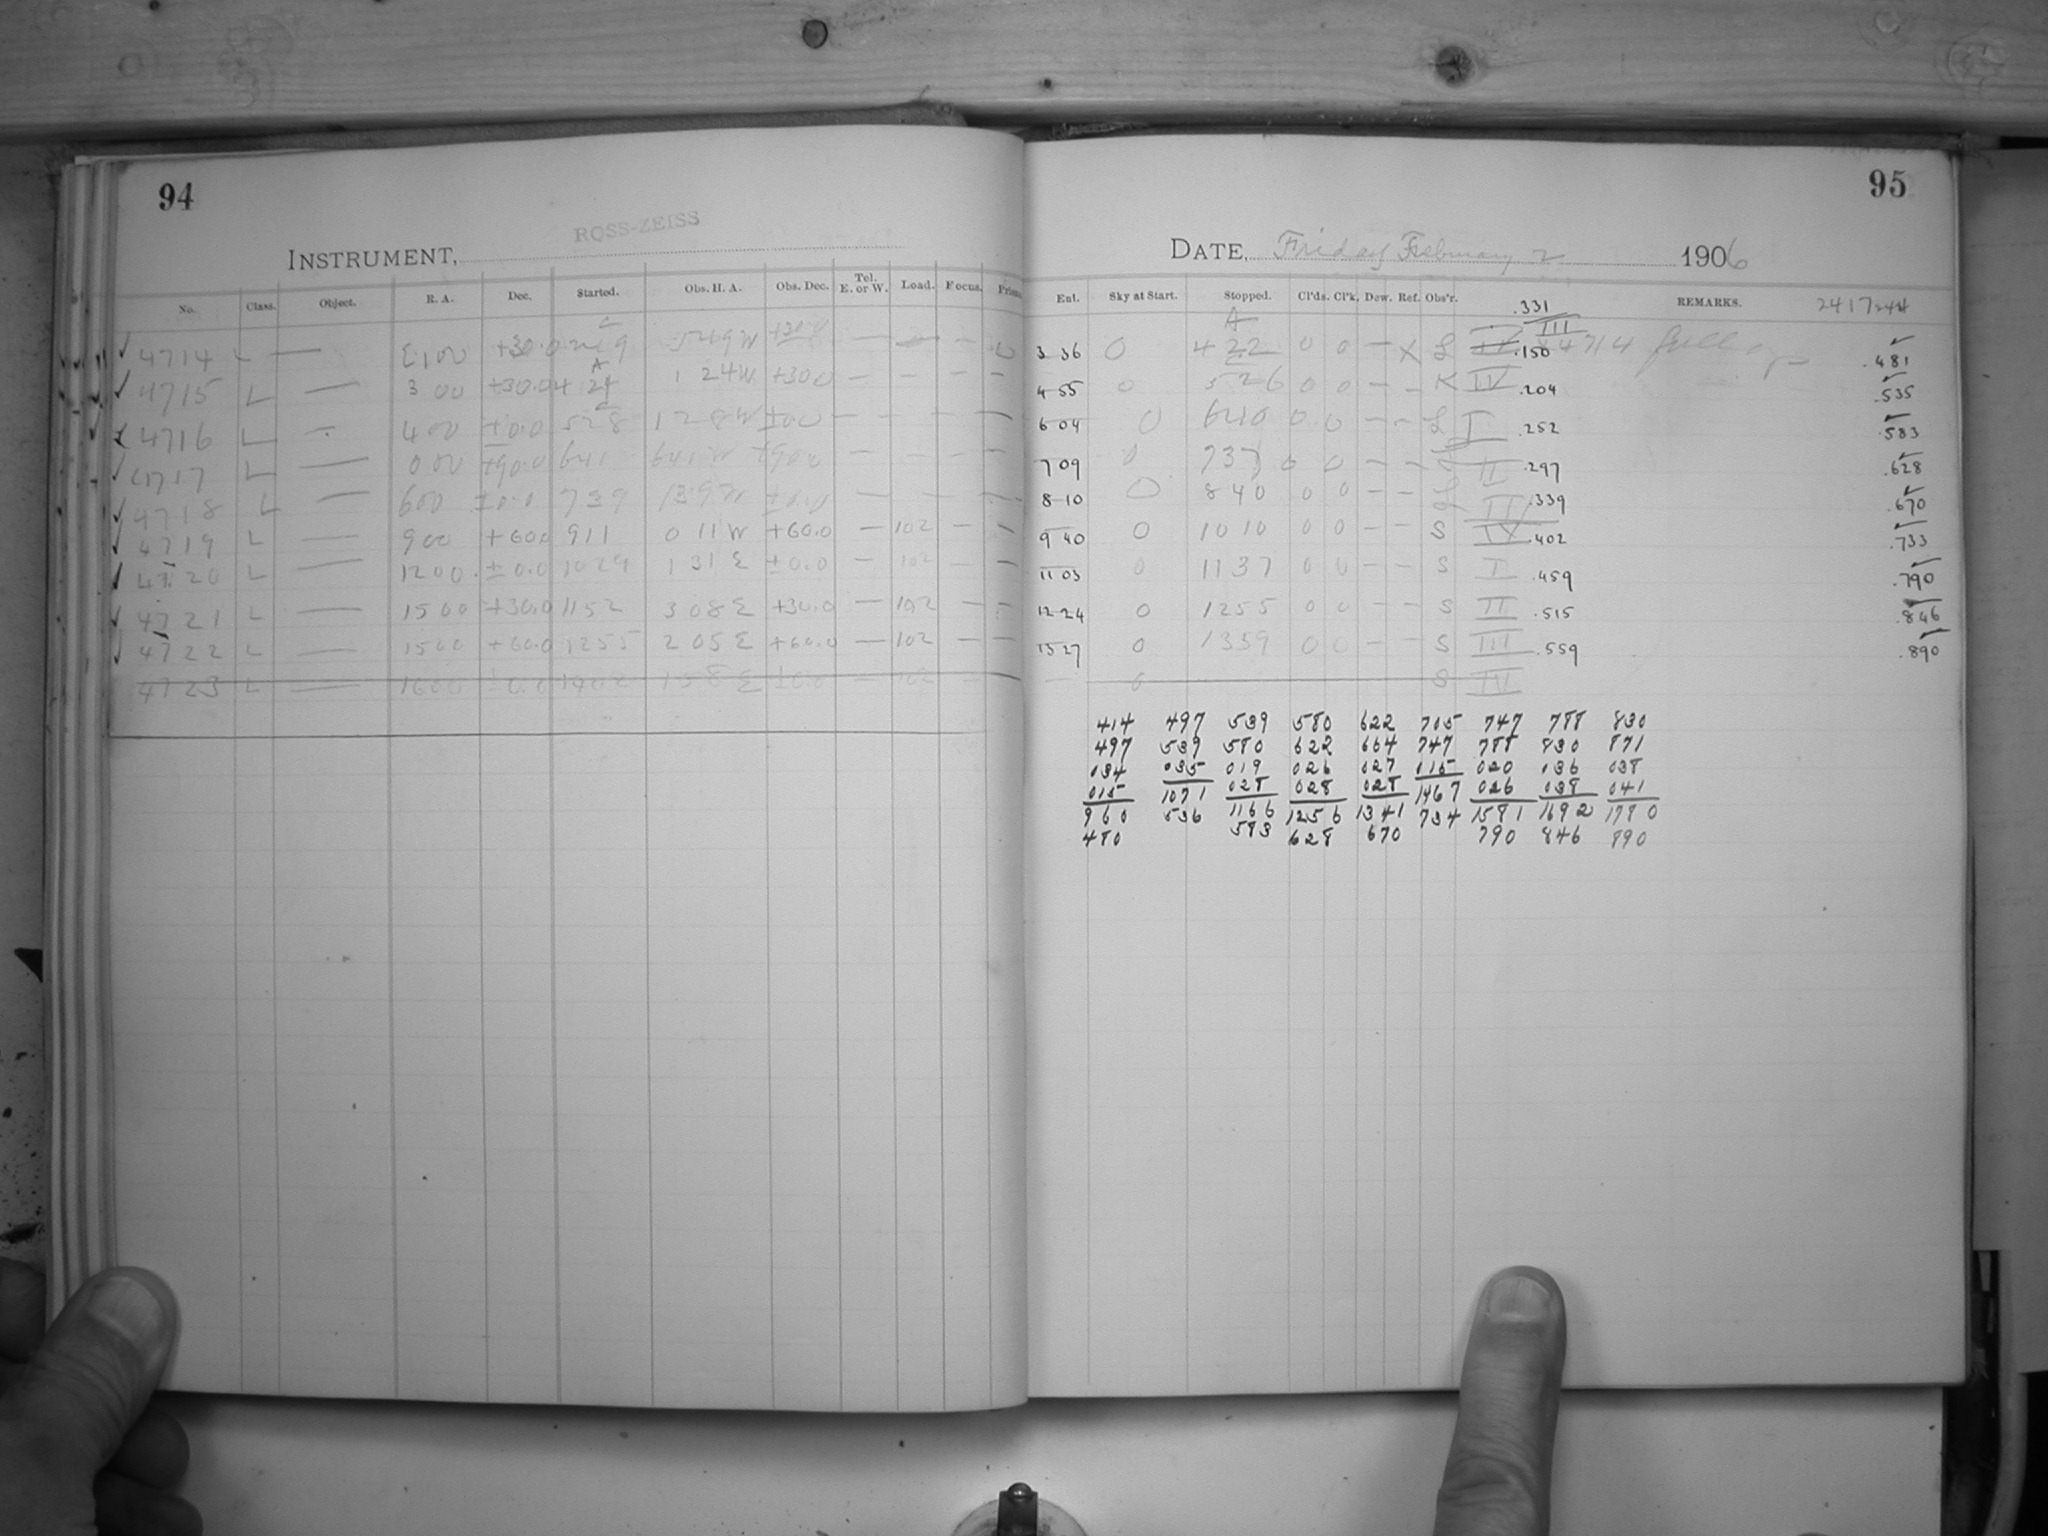 94
ROSS-ZEISS
INSTRUMENT,
No. Class. Object. R. A. Dec. Started. Obs. H. A. Obs. Dec. Tel. E. or W. Load. Focus.
4714 L —
4715 L — 3 00 +30.0 4 24 1 24W +30.0 — — — —
4716 L 4 00 ±0.0 5 28 1 28W ±0.0 — — — —
4717 L — 0 00 +90.0 6 41 6 41 W +90.0 — — — —
4718 L — 6 00 ±0.0 7 39 1 39W ±0.0 — — — —
4719 L — 9 00 +60.0 9 11 0 11W +60.0 — 102 — —
4720 L — 12 00 ±0.0 10 29 1 31 E ±0.0 — 102 — —
4721 L — 15 00 +30.0 11 52 3 08 E +30.0 — 102 — —
4722 L — 15 00 +60.0 12 55 2 05 E +60.0 — 102 — —
4723 L — 16 00 ±0.0 14 02 1 58 E ±0.0 — 102 — —
95
DATE, Friday February 2 1906
Ent. Sky at Start. Stopped. Cl'ds. Cl'k. Dew. Ref. Obs'r. REMARKS.
.331 2417244
3 36 0 4 22 0 0 — X L .150 III 4714 .481
4 55 0 5 26 0 0 — — K IV .204 .535
6 04 0 6 40 0 0 — — L I .252 .583
7 09 0 7 37 0 0 — — II .297 .628
8 10 0 8 40 0 0 — — L III .339 .670
9 40 0 10 10 0 0 — — S IV .402 .733
11 03 0 11 37 0 0 — — S I .459 .790
12 24 0 12 55 0 0 — — S II .515 .846
13 27 0 13 59 0 0 — — S III .559 .890
0 S IV
414 497 539 580 622 705 747 788 830
497 539 580 622 664 747 788 830 871
034 035 019 026 027 015 020 036 038
015 1071 028 028 028 1467 026 038 041
960 536 1166 1256 1341 734 1581 1692 1780
480 583 628 670 790 846 890